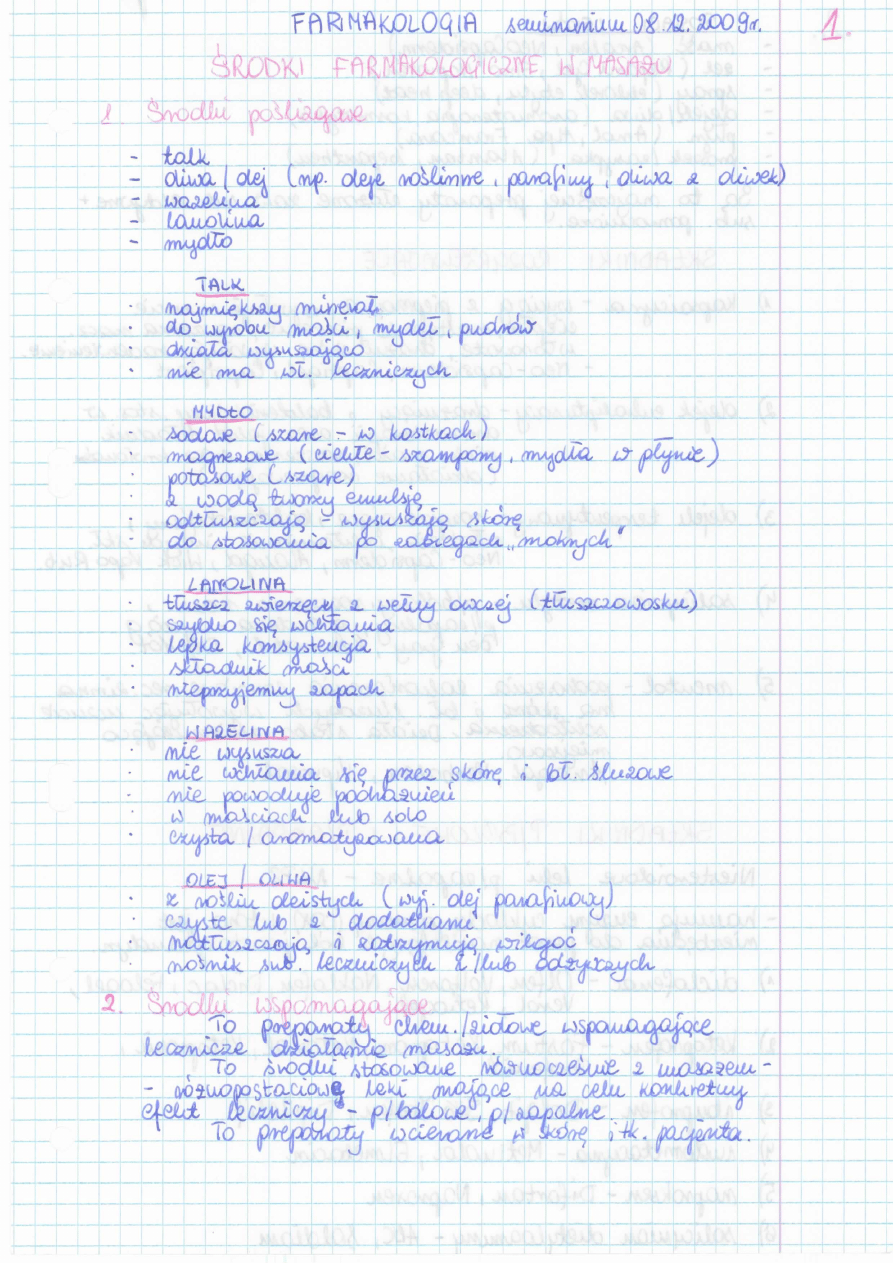 FARMAKOLOGIA seminarium 08.12.2009r. 1.
ŚRODKI FARMAKOLOGICZNE W MASAŻU
1. Środki poślizgowe
- talk
- oliwa / olej (np. oleje roślinne, parafiny, oliwa z oliwek)
- wazelina
- lanolina
- mydło
TALK
· najmiększy minerał
· do wyrobu maści, mydeł, pudrów
· działa wysuszająco
· nie ma wł. leczniczych
MYDŁO
· sodowe (szare - w kostkach)
· magnezowe (ciekłe - szampony, mydła w płynie)
· potasowe (szare)
· z wodą tworzy emulsję
· odtłuszczają - wysuszają skórę
· do stosowania po zabiegach „mokrych"
LANOLINA
· tłuszcz zwierzęcy z wełny owczej (tłuszczowosku)
· szybko się wchłania
· lepka konsystencja
· składnik maści
· nieprzyjemny zapach
WAZELINA
· nie wysusza
· nie wchłania się przez skórę i bł. śluzowe
· nie powoduje podrażnień
· w maściach lub solo
· czysta / aromatyzowana
OLEJ / OLIWA
· z roślin oleistych (wyj. olej parafinowy)
· czyste lub z dodatkami
· natłuszczają i zatrzymują wilgoć
· nośnik sub. leczniczych &/lub odżywczych
2. Środki wspomagające
To preparaty chem./ziołowe wspomagające
lecznicze działanie masażu.
To środki stosowane równocześnie z masażem -
- różnopostaciowe leki mające na celu konkretny
efekt leczniczy - p/bólowe, p/zapalne.
To preparaty wcierane w skórę i tk. pacjenta.